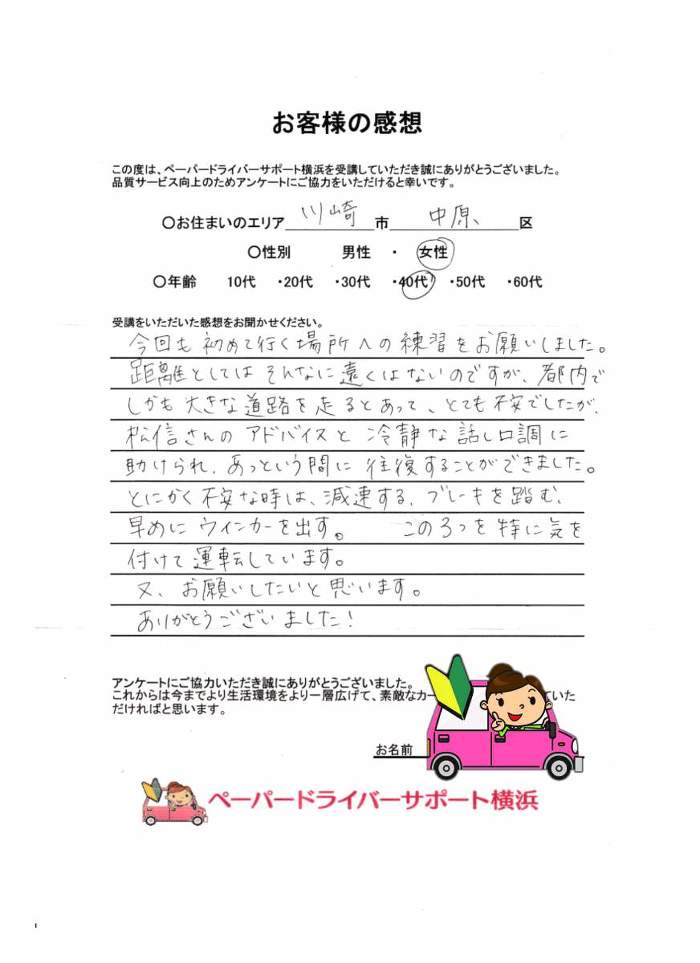 お客様の感想
この度は、ペーパードライバーサポート横浜を受講していただき誠にありがとうございました。
品質サービス向上のためアンケートにご協力をいただけると幸いです。
〇お住まいのエリア 川崎 市 中原 区
〇性別 男性 ・ 女性
〇年齢 10代 ・20代 ・30代 ・40代 ・50代 ・60代
受講をいただいた感想をお聞かせください。
今回も初めて行く場所への練習をお願いしました。
距離としてはそんなに遠くはないのですが、都内で
しかも大きな道路を走るとあって、とても不安でしたが、
松信さんのアドバイスと冷静な話し口調に
助けられ、あっという間に往復することができました。
とにかく不安な時は、減速する、ブレーキを踏む、
早めにウィンカーを出す。 この3つを特に気を
付けて運転しています。
又、お願いしたいと思います。
ありがとうございました!
アンケートにご協力いただき誠にありがとうございました。
これからは今までより生活環境をより一層広げて、素敵なカー ていた
だければと思います。
お名前
ペーパードライバーサポート横浜